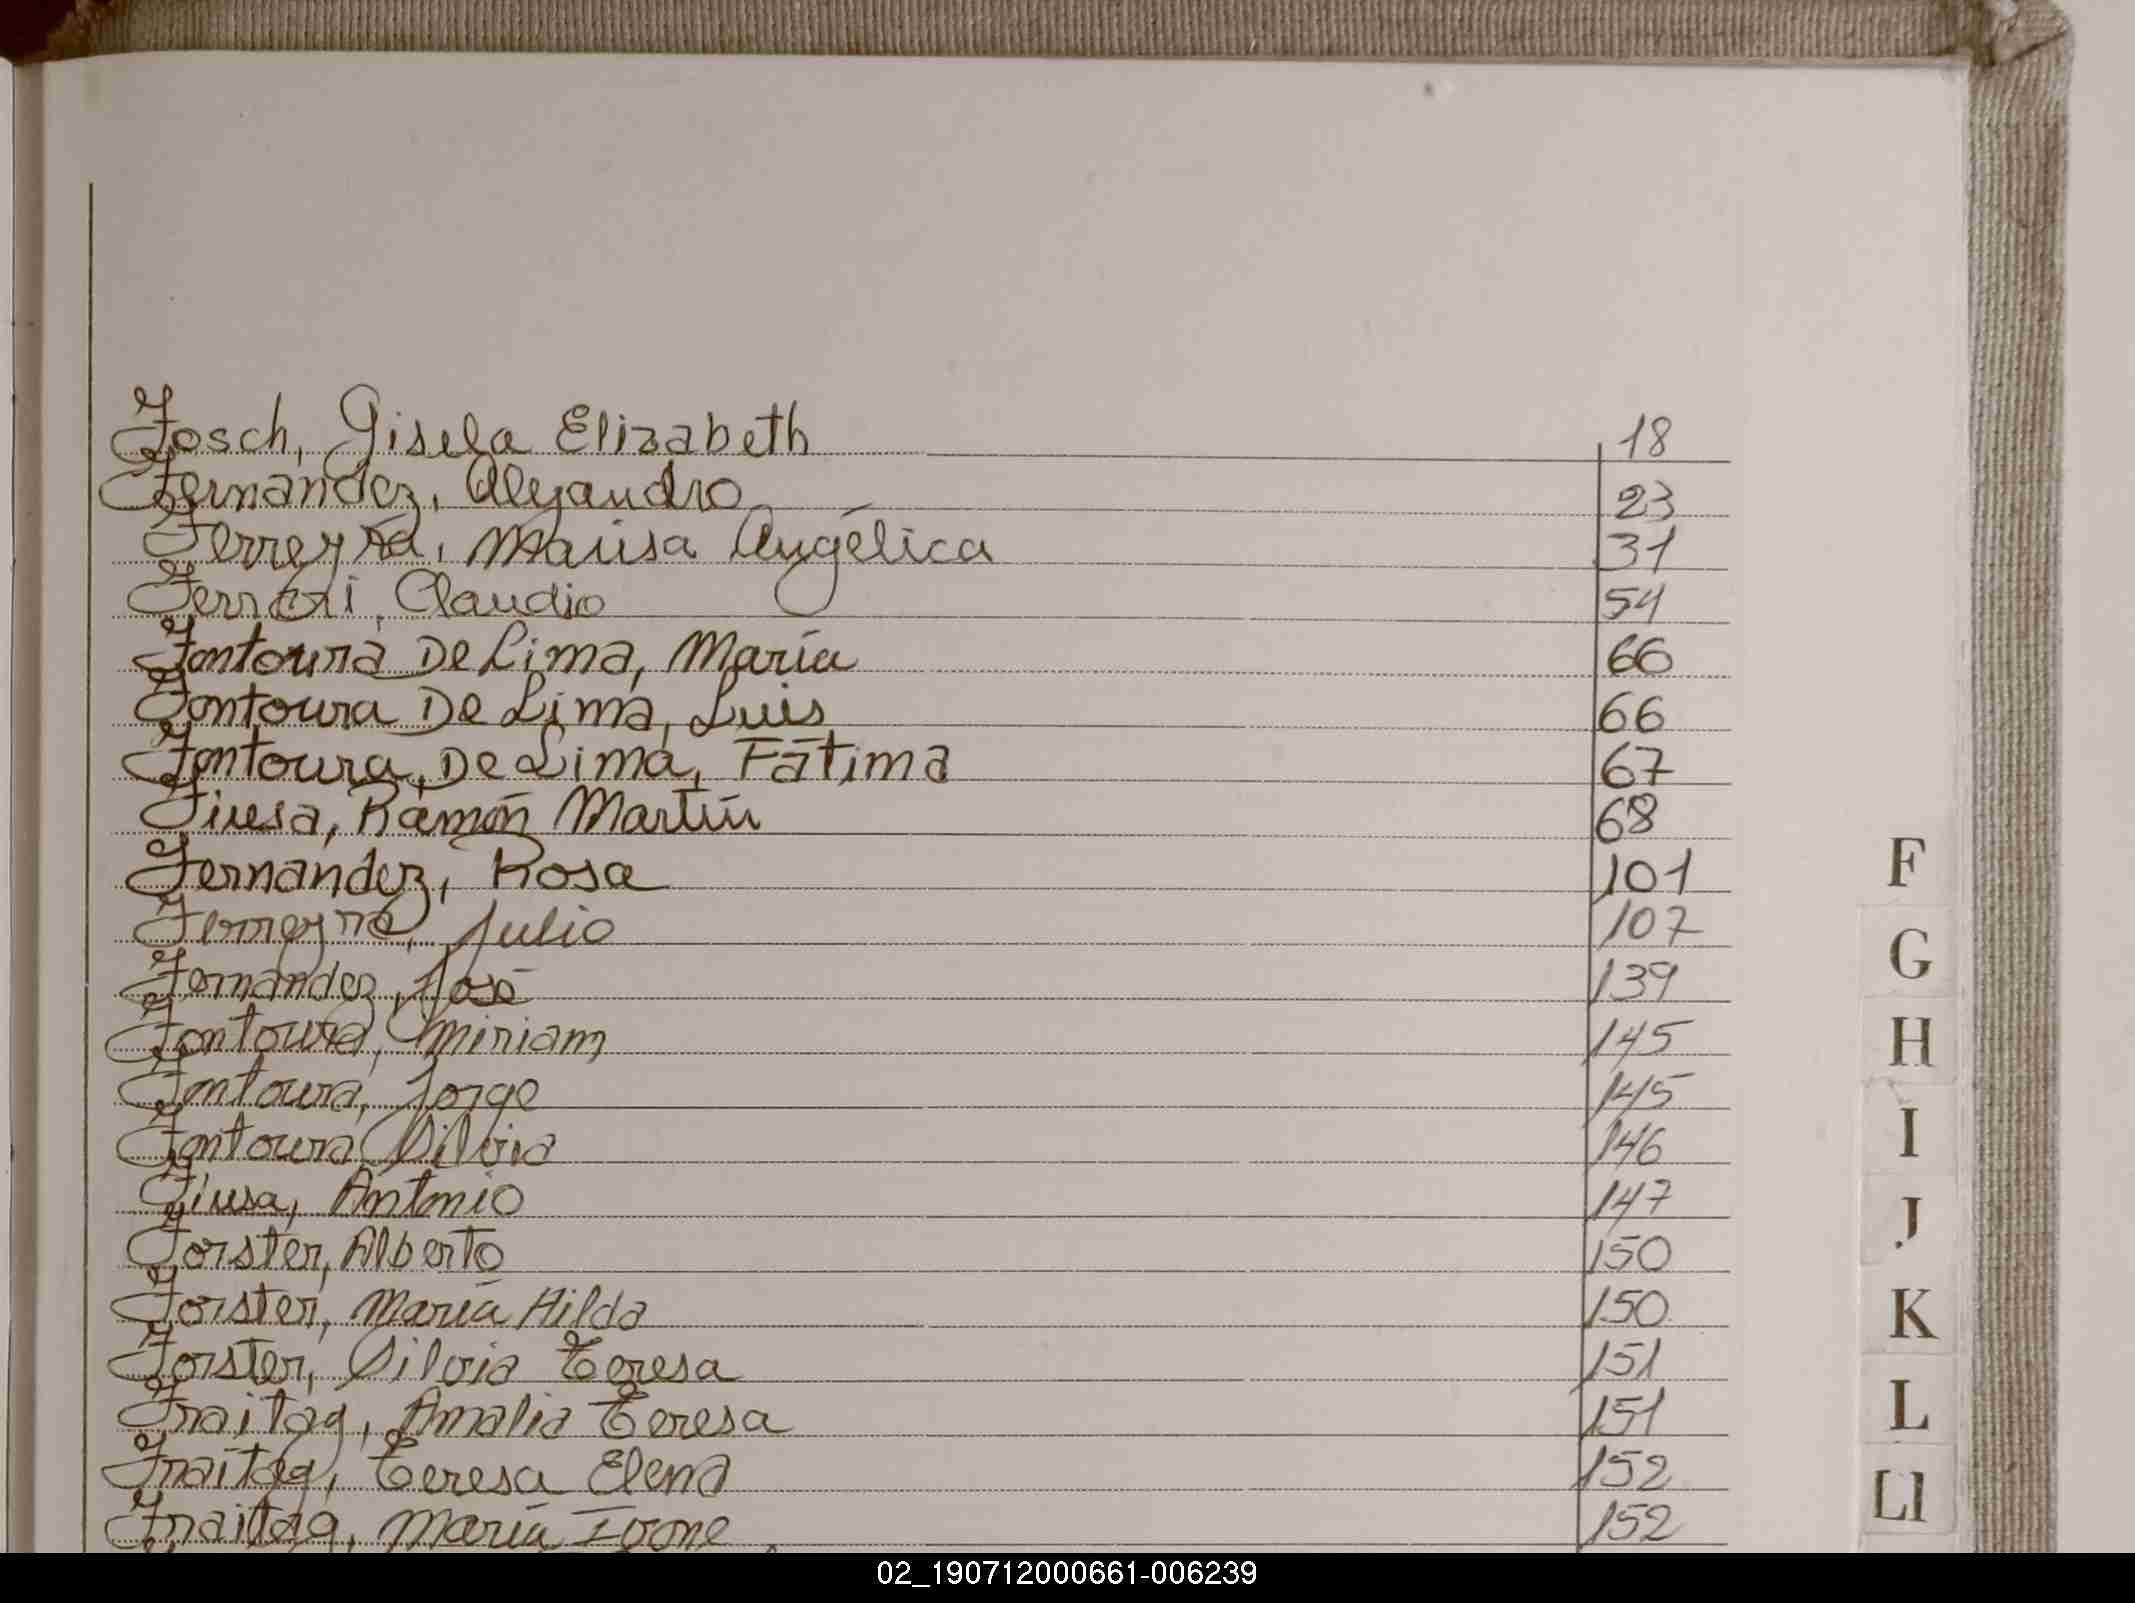 Fosch, Gisela Elizabeth 18
Fernández, Alejandro 23
Ferreyra, Marisa Angélica 31
Ferrari, Claudio 54
Fontoura De Lima, María 66
Fontoura De Lima, Luis 66
Fontoura, De Lima, Fátima 67
Fiusa, Ramón Martín 68
Fernandez, Rosa 101
Ferreyra, Julio 107
Fernandez, José 139
Fontoura, Miriam 145
Fontoura, Jorge 145
Fontoura Silvia 146
Fiusa, Antonio 147
Forster, Alberto 150
Forster, María Hilda 150
Forster, Silvia Teresa 151
Fraitag, Amalia Teresa 151
Fraitag, Teresa Elena 152
Fraitag, María Ivone 152
F
G
H
I
J
K
L
Ll
02_190712000661-006239